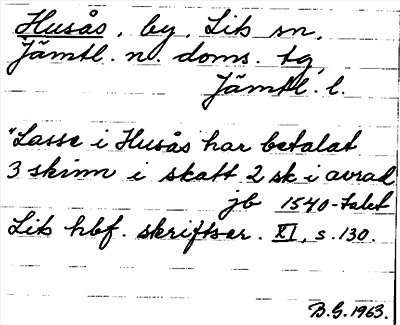 Husås, by, Lits sn,
Jämtl. n. doms. tg,
Jämtl. l.
"Lasse i Husås har betalat
3 skinn i skatt 2 sk i avrad
jb 1540-talet
Lits hbf. skriftser. XI, s. 130.
B.G. 1963.